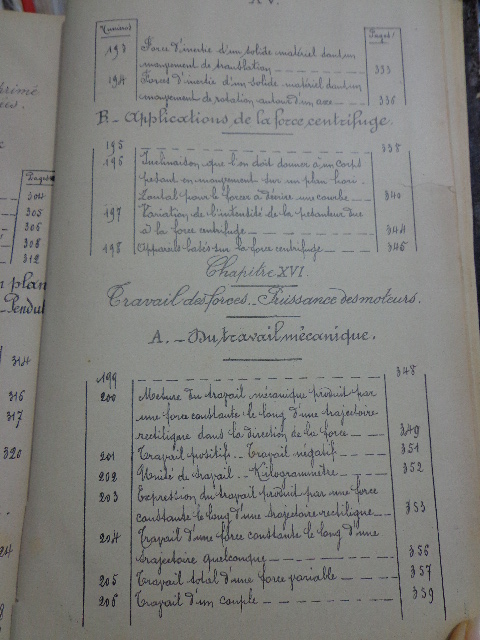 XV.
Numéros Pages
193 Force d'inertie d'un solide matériel dans un
mouvement de translation 333
194 Forces d'inertie d'un solide matériel dans un
mouvement de rotation autour d'un axe 336
B - Applications de la force centrifuge.
195 338
196 Inclinaison que l'on doit donner à un corps
pesant en mouvement sur un plan hori-
zontal pour le forcer à décrire une courbe 340
197 Variation de l'intensité de la pesanteur due
à la force centrifuge 344
198 Appareils batis sur la force centrifuge 346
Chapitre XVI.
Travail des forces - Puissance des moteurs.
A. - Du travail mécanique.
199 348
200 Mesure du travail mécanique produit par
une force constante le long d'une trajectoire
rectiligne dans la direction de la force 349
201 Travail positif - Travail négatif 351
202 Unité de travail - Kilogrammètre 352
203 Expression du travail produit par une force
constante le long d'une trajectoire rectiligne 353
204 Travail d'une force constante le long d'une
trajectoire quelconque 356
205 Travail total d'une force variable 357
206 Travail d'un couple 359
Pages
304
305
306
308
312
plan
Pendul
314
316
317
320